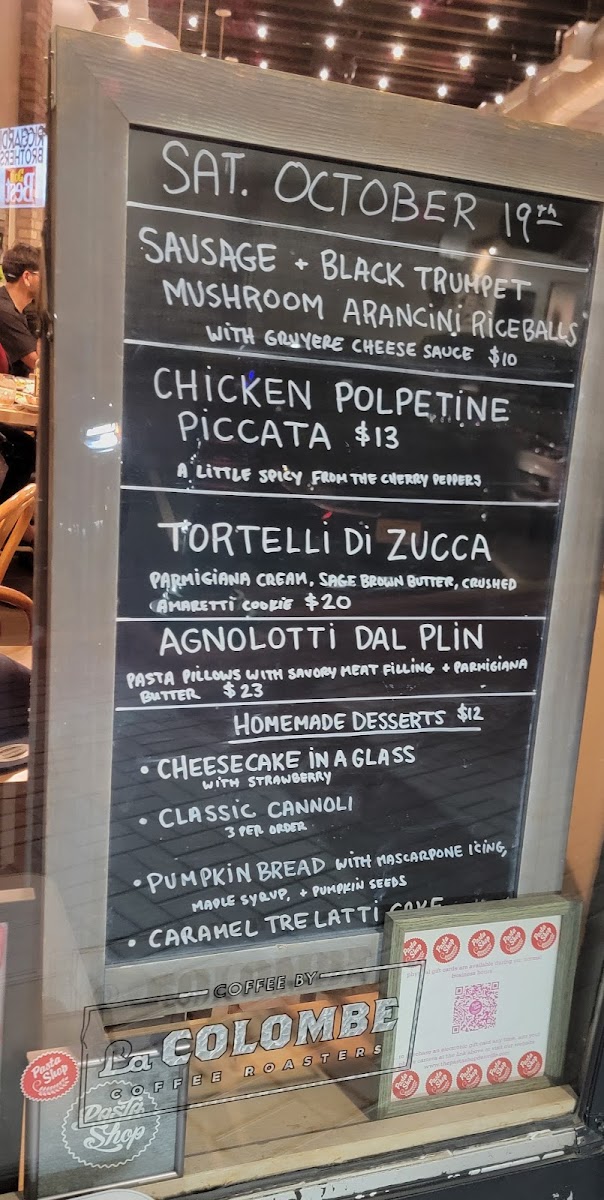 SAT. OCTOBER 19TH
SAUSAGE + BLACK TRUMPET
MUSHROOM ARANCINI RICEBALLS
WITH GRUYERE CHEESE SAUCE $10
CHICKEN POLPETINE
PICCATA $13
A LITTLE SPICY FROM THE CHERRY PEPPERS
TORTELLI DI ZUCCA
PARMIGIANA CREAM, SAGE BROWN BUTTER, CRUSHED
AMARETTI COOKIE $20
AGNOLOTTI DAL PLIN
PASTA PILLOWS WITH SAVORY MEAT FILLING + PARMIGIANA
BUTTER $23
HOMEMADE DESSERTS $12
• CHEESECAKE IN A GLASS
WITH STRAWBERRY
• CLASSIC CANNOLI
3 PER ORDER
• PUMPKIN BREAD WITH MASCARPONE ICING,
MAPLE SYRUP, + PUMPKIN SEEDS
• CARAMEL TRE LATTI CAKE
COFFEE BY
La COLOMBE
COFFEE ROASTERS
Pasta Shop
Pasta Shop
Pasta Shop
Pasta Shop
Pasta Shop
Pasta Shop
Pasta Shop
Pasta Shop
Pasta Shop
Pasta Shop
Pasta
Shop
Pasta
Shop